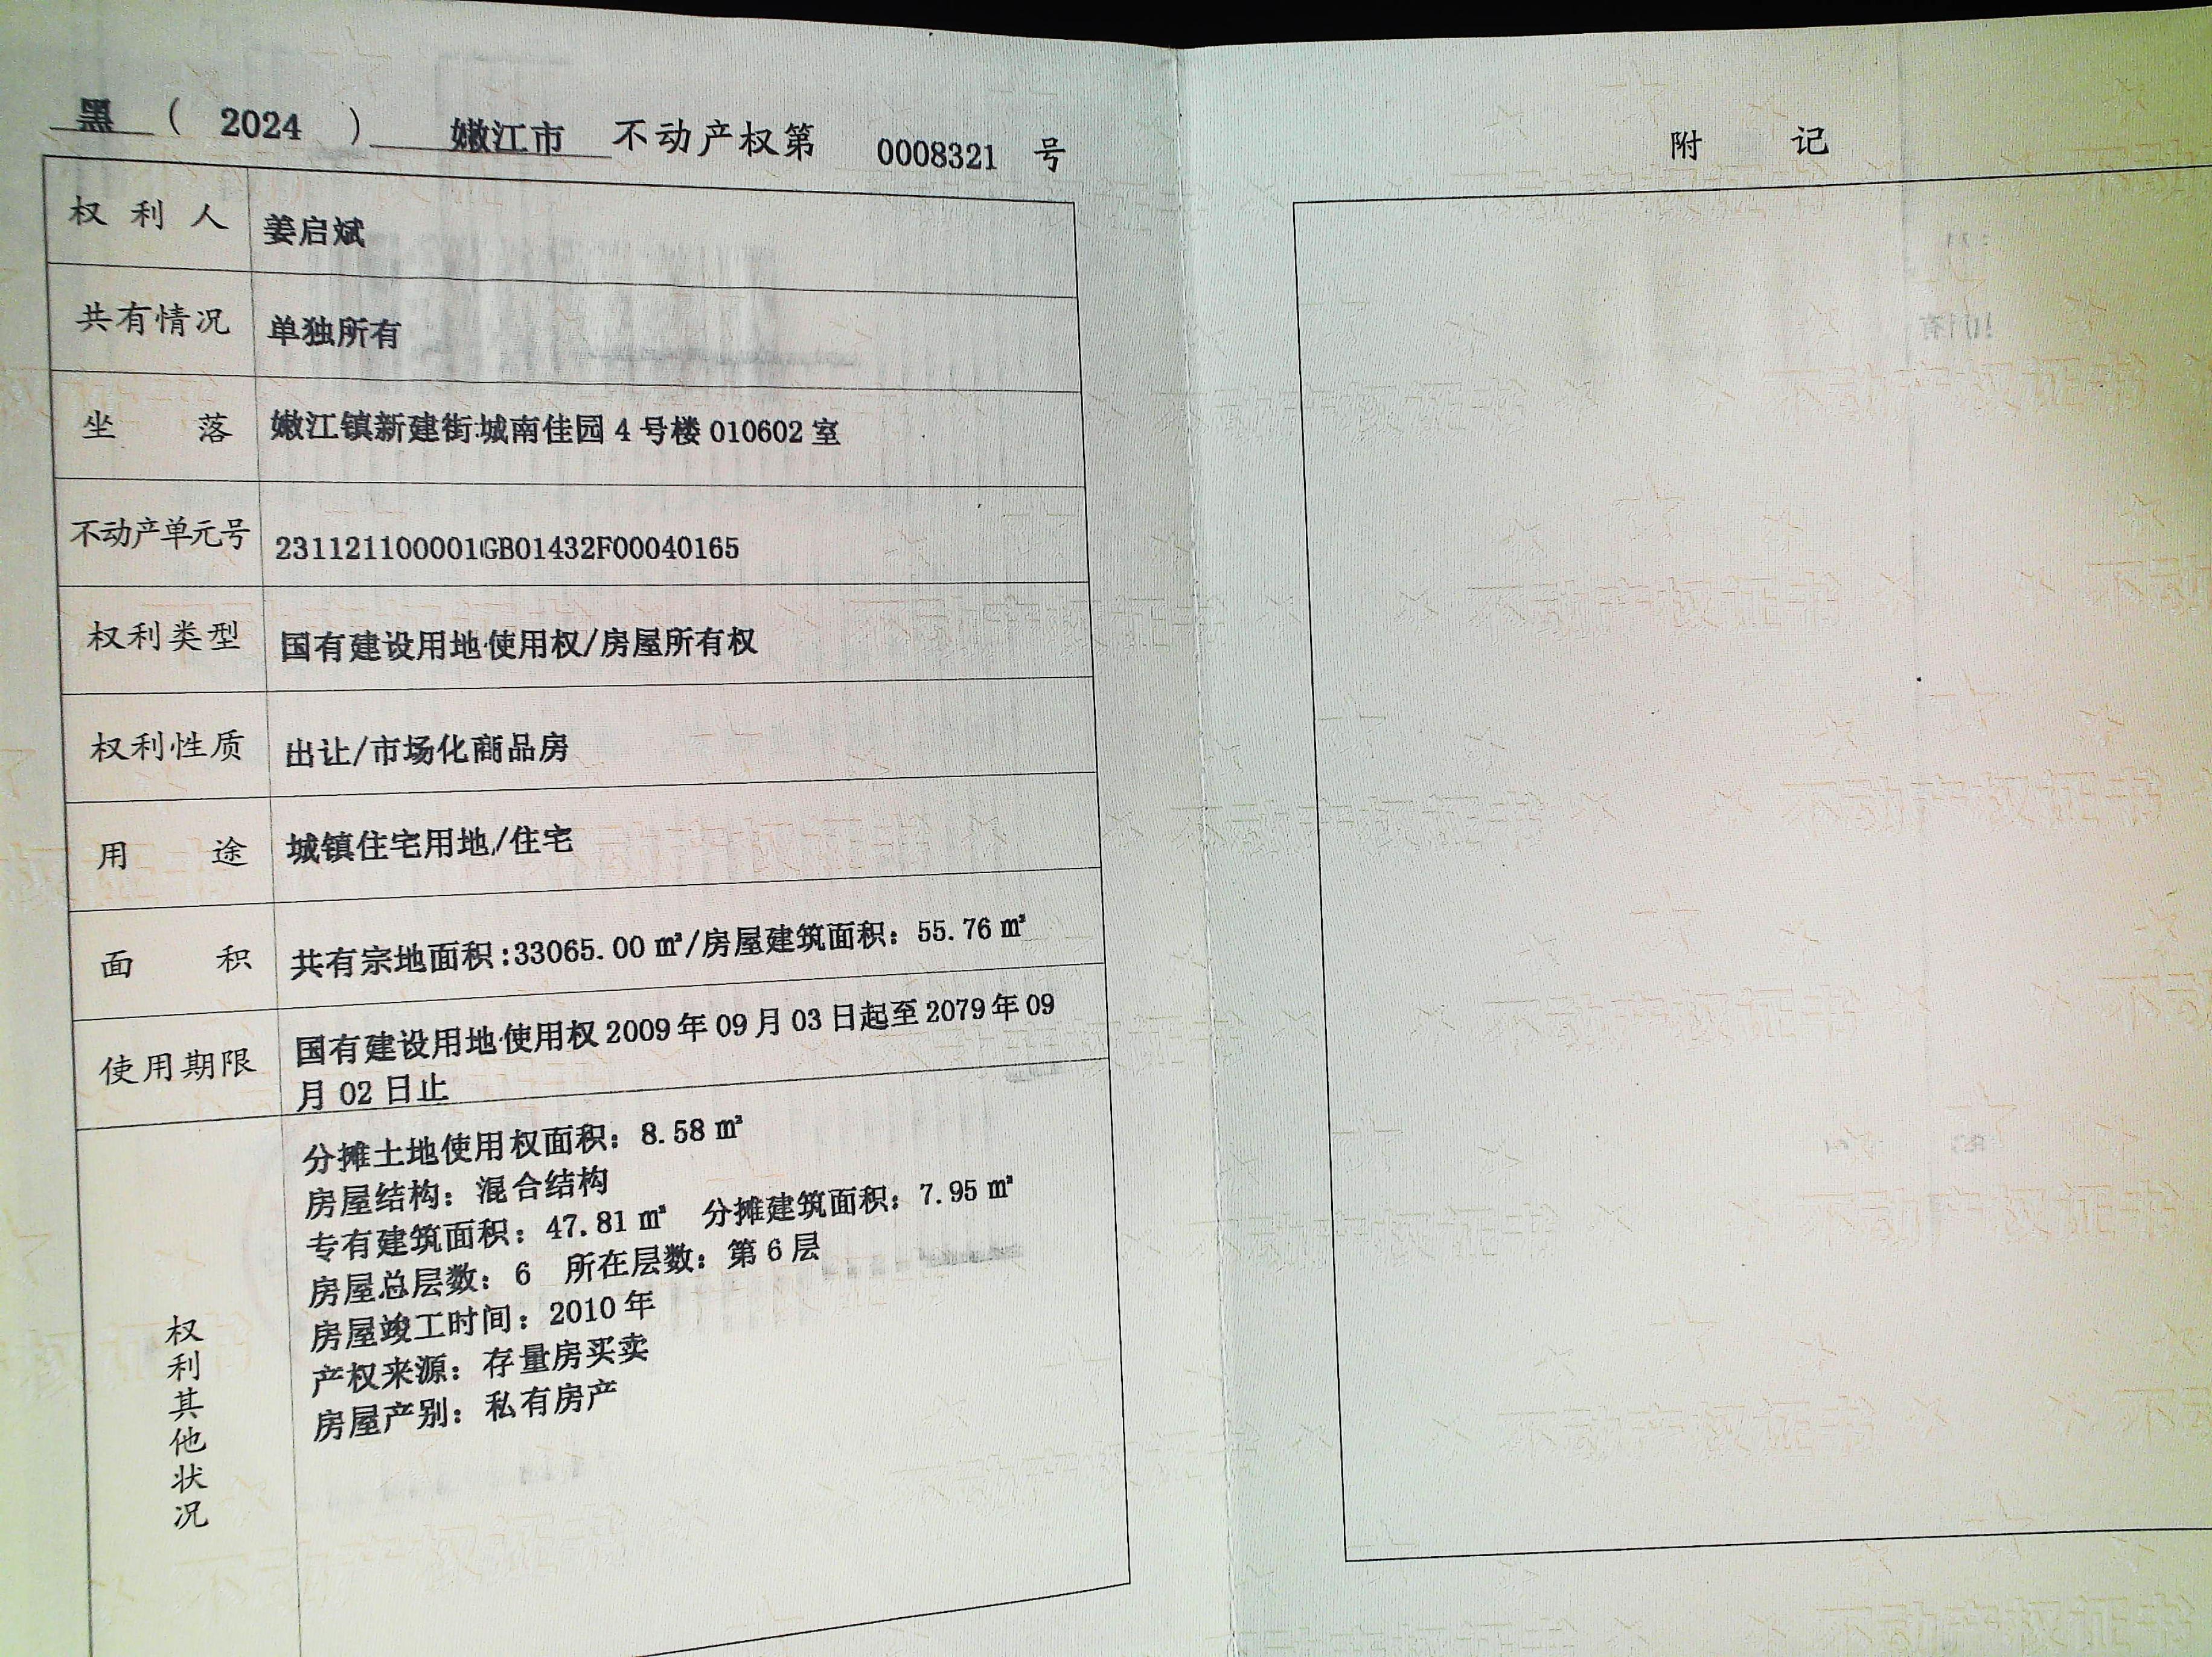 黑 ( 2024 ) 嫩江市 不动产权第 0008321 号
权利人 姜启斌
共有情况 单独所有
坐落 嫩江镇新建街城南佳园 4 号楼 010602 室
不动产单元号 231121100001GB01432F00040165
权利类型 国有建设用地使用权/房屋所有权
权利性质 出让/市场化商品房
用途 城镇住宅用地/住宅
面积 共有宗地面积:33065.00 ㎡/房屋建筑面积：55.76 ㎡
使用期限 国有建设用地使用权 2009 年 09 月 03 日起至 2079 年 09
月 02 日止
权利其他状况
分摊土地使用权面积：8.58 ㎡
房屋结构：混合结构
专有建筑面积：47.81 ㎡ 分摊建筑面积：7.95 ㎡
房屋总层数：6 所在层数：第 6 层
房屋竣工时间：2010 年
产权来源：存量房买卖
房屋产别：私有房产
附记